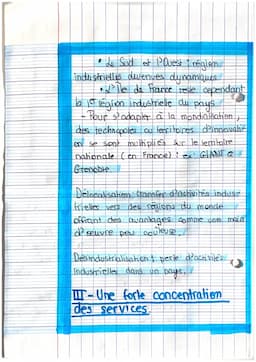 • Le Sud et l'Ouest : région
industrielles devenues dynamiques
• L'Île de France reste cependant
la 1e région industrielle du pays
- Pour s'adapter à la mondialisation,
des technopoles ou territoires d'innovati
on se sont multipliés sur le territoire
nationale (en France) : ex GIANT à
Grenoble
Délocalisation : transfert d'activités indus
trielles vers des régions du monde
offrant des avantages comme une main
d'œuvre peu coûteuse.
Désindustrialisation : perte d'activités
Industrielles dans un pays.
III - Une forte concentration
des services